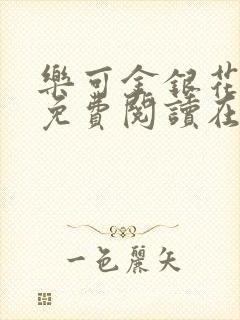 樂可金銀花
免費閱讀在
一色麗矢